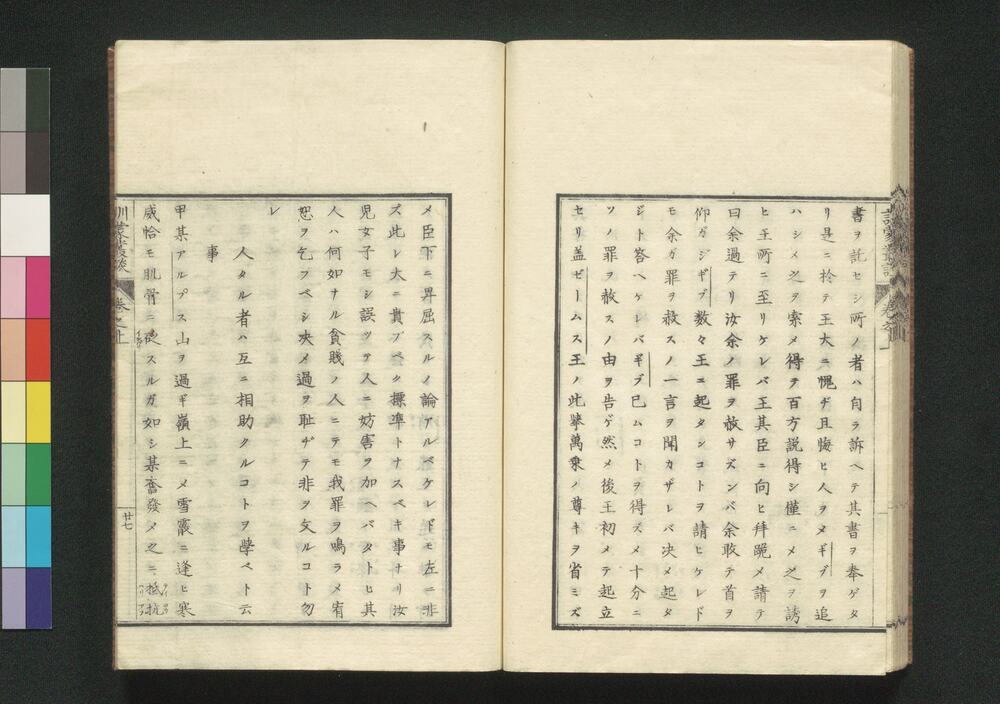 書ヲ託セシ所ノ者ハ自ラ訴ヘテ其書ヲ奉ゲタ
リ是ニ於テ王大ニ愧ヂ且悔ヒ人ヲメギブヲ追
ハシメ之ヲ索メ得テ百方説得シ僅ニメ之ヲ誘
ヒ王所ニ至リケレバ王其臣ニ向ヒ拜跪メ請テ
曰余過テリ汝余ノ罪ヲ赦サズンバ余敢テ首ヲ
仰ガジギブ数々王ニ起タンコトヲ請ヒケレド
モ余ガ罪ヲ赦スノ一言ヲ聞カザレバ决メ起タ
ジト答ヘケレバギブ已ムコトヲ得ズメ十分ニ
ソノ罪ヲ赦スノ由ヲ告ゲ然メ後王初メテ起立
セリ盖ゼームス王ノ此擧萬乘ノ尊キヲ省ミズ
メ臣下ニ畀屈スルノ論アルベケレ𪜈左ニ非
ズ此レ大ニ貴ブベク標凖トナスベキ事ナリ汝
兒女子モシ誤ツテ人ニ妨害ヲ加ヘバタトヒ其
人ハ何如ナル貪賤ノ人ニテモ我罪ヲ鳴ラメ宥
恕ヲ乞フベシ决メ過ヲ耻ヂテ非ヲ文ルコト勿
レ
人タル者ハ互ニ相助クルコトヲ學ベト云
事
甲某アルプス山ヲ過ギ嶺上ニメ雪霰ニ逢ヒ寒
威恰モ肌骨ニ徹スルガ如シ某奮發メ之ニ抵抗
訓蒙叢談 卷之上 廿七